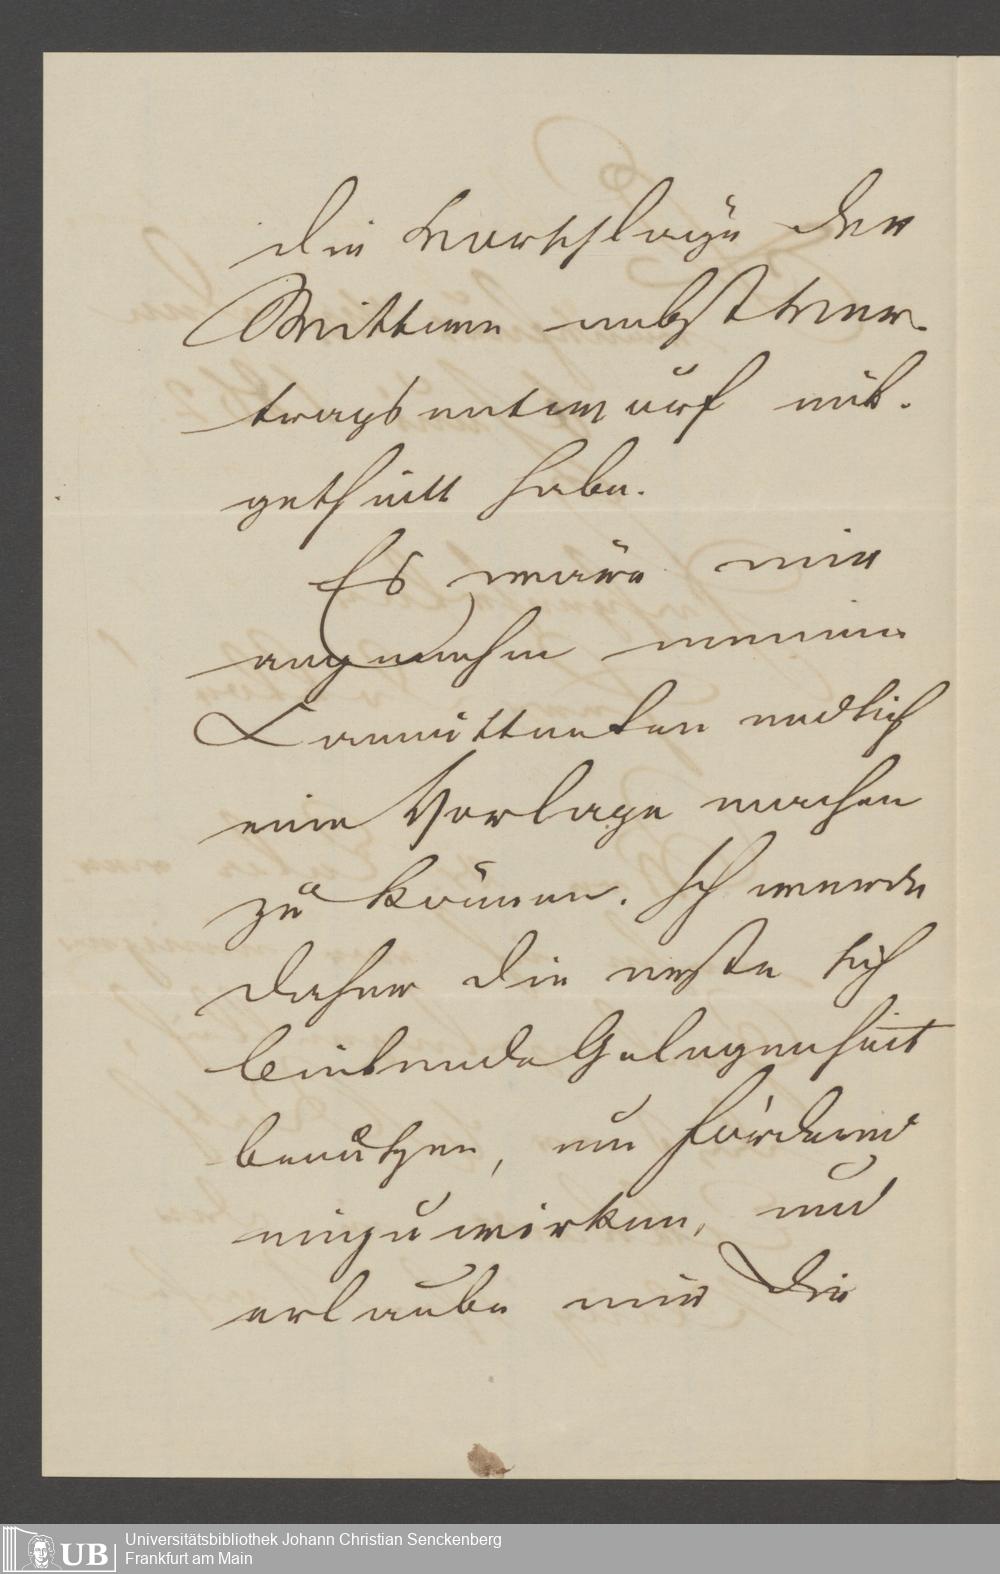 die Vorschläge der
Wittwe nebst Ver-
tragsentwurf mit-
getheilt habe.
Es wäre mir
angenehm meinen
Committenten endlich
eine Vorlage machen
zu können. Ich werde
daher die erste sich
bietende Gelegenheit
benützen, um fördernd
einzuwirken, und
erlaube mir die
UB
Universitätsbibliothek Johann Christian Senckenberg
Frankfurt am Main